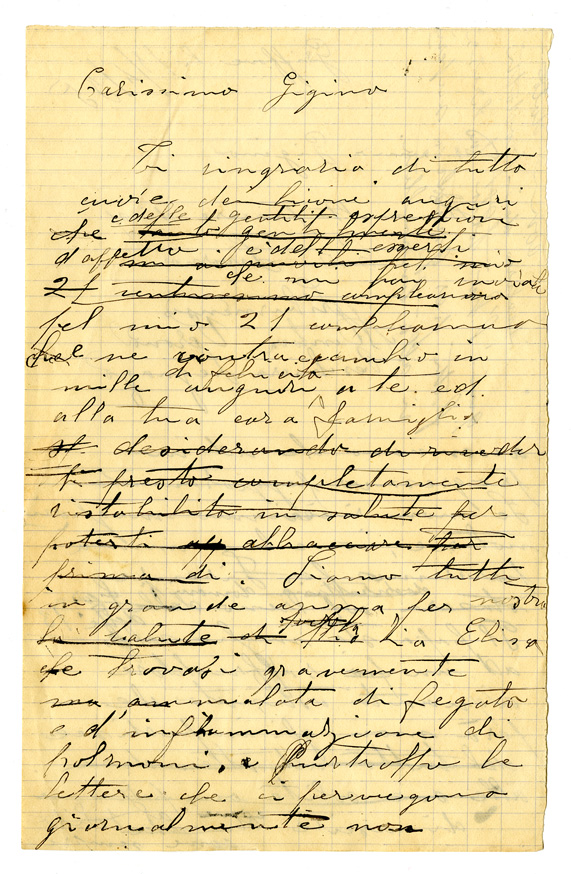 Carissimo Gigino
Ti ringrazio di tutto
cuore dei buoni auguri
e delle gentili espressioni
che tanto gentilmente
d'affetto
che mi hai inviato
21 ventunesimo compleanno
pel mio 21 compleanno
che ne contracambio in
di felicità
mille auguri a te ed
alla tua cara famiglia
desiderando di rivederti
presto completamente
ristabilito in salute per
poterti abbracciare
prima di. Siamo tutti
in grande ansia per nostra
la salute di Zia Elisa
che trovasi gravemente
ammalata di fegato
e d'inflammazione di
polmoni, e Purtroppo le
lettere che ci pervengono
giornalmente non